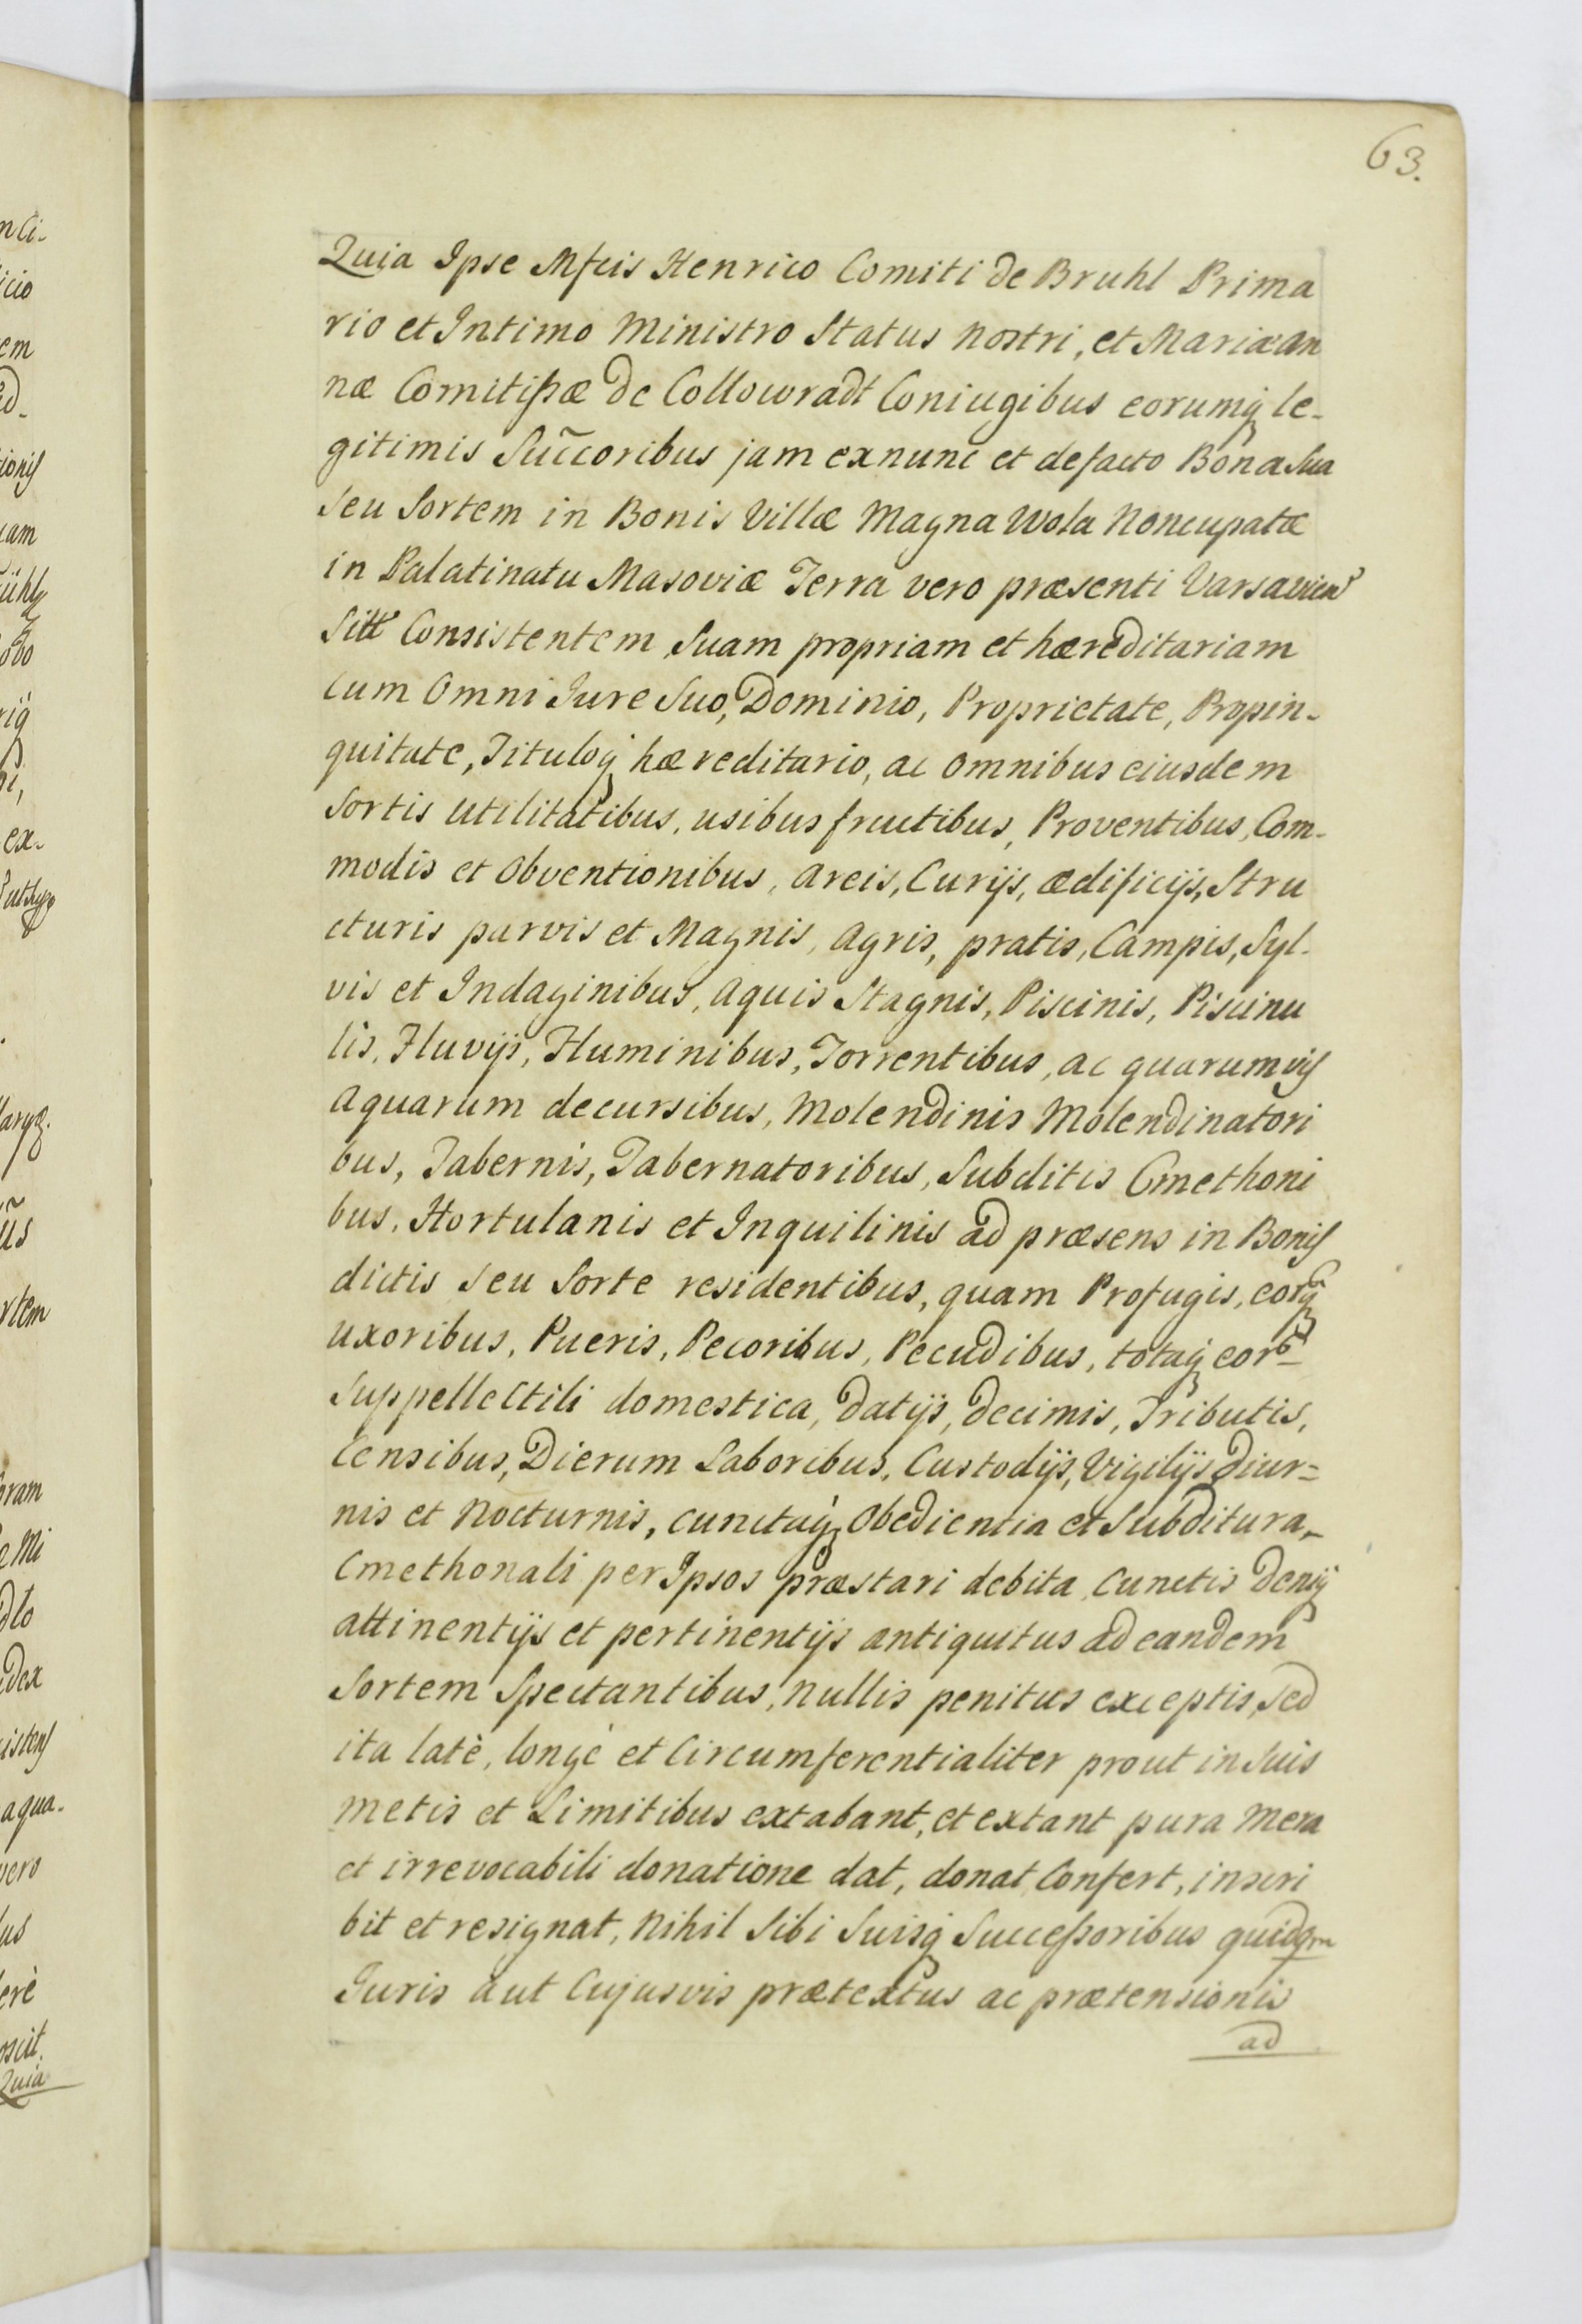 63.
Quia Ipse Mfcis Henrico Comiti de Bruhl Prima
rio et Intimo Ministro Status Nostri, et Mariæ an
næ Comitißæ de Collowradt Coniugibus eorumq; le-
gitimis Suc̃coribus jam exnunc et defacto Bona Sua
seu Sortem in Bonis Villæ Magna Wola Noncupatæ
in Palatinatu Masoviæ Terra vero præsenti Varsavien
Sitt Consistentem Suam propriam et hæreditariam
cum Omni Iure Suo, Dominio, Proprietate, Propin-
quitate, Tituloq; hæreditario, ac Omnibus eiusdem
Sortis Utilitatibus, usibus fructibus, Proventibus, Com-
modis et Obventionibus, Areis, Curijs, ædificijs, Stru
cturis parvis et Magnis, Agris, pratis, Campis, Syl-
vis et Indaginibus, Aquis Stagnis, Piscinis, Piscinu
lis, Fluvijs, Fluminibus, Torrentibus, ac quarumvis
Aquarum decursibus, Molendinis Molendinatori
bus, Tabernis, Tabernatoribus, Subditis Cmethoni
bus, Hortulanis et Inquilinis ad præsens in Bonis
dictis seu Sorte residentibus, quam Profugis, eorq;
uxoribus, Pueris, Pecoribus, Pecudibus, totaq; eor
Suppellectili domestica, Datijs, Decimis, Tributis,
Censibus, Dierum Laboribus, Custodijs, Vigilijs Diur=
nis et Nocturnis, cunctaq; Obedientia et Subditura
Cmethonali per Ipsos præstari debita, Cunctis Deniq;
attinentijs et pertinentijs antiquitus ad eandem
Sortem Spectantibus, Nullis penitus exceptis, Sed
ita latè, longè et Circumferentialiter prout in suis
metis et Limitibus extabant, et extant pura Mera
et irrevocabili donatione dat, donat Confert, inscri
bit et resignat, Nihil Sibi Suisq; Succeßoribus quidqm
Iuris aut Cujusvis prætextus ac prætensionis
ad